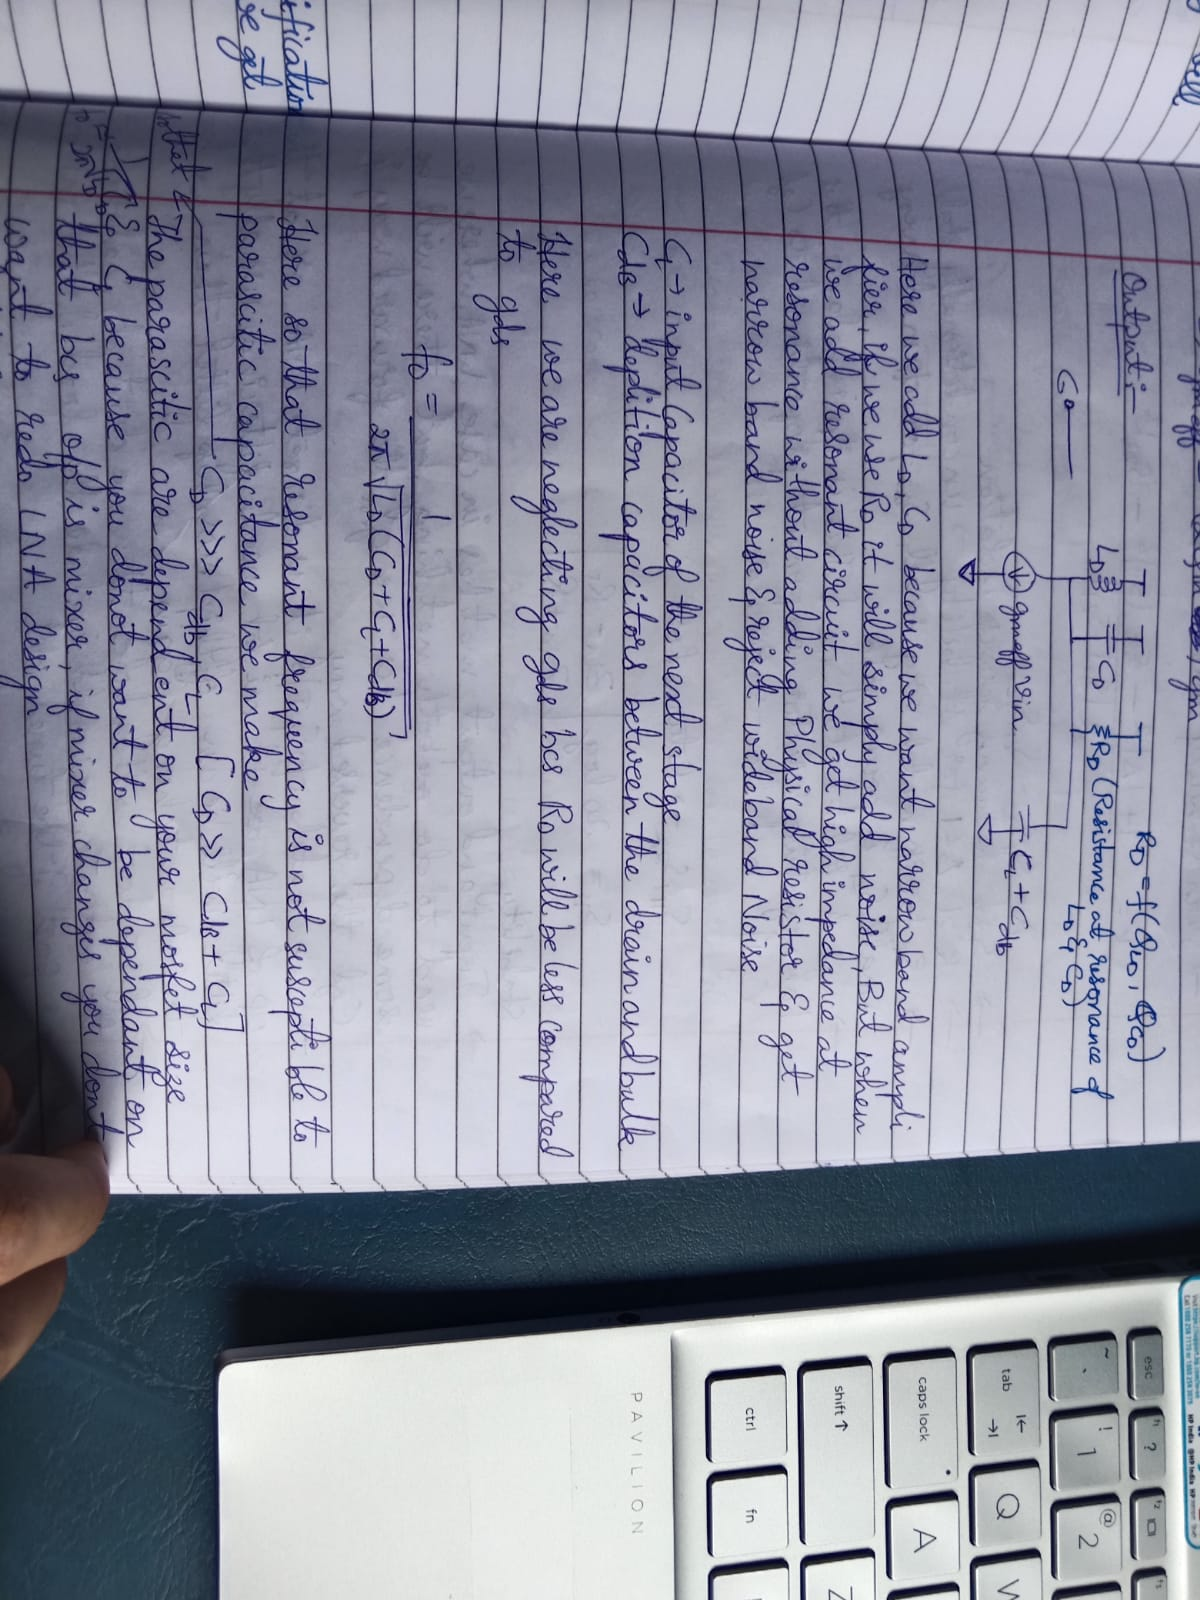 Output:-
RD = f(QLD, QCD)
LD
CD
RD (Resistance at resonance of
LD & CD)
Go
gmeff vin
CL + Cdb
Here we add LD, CD because we want narrow band ampli
fier, if we use RD it will simply add noise, But when
we add resonant circuit we get high impedance at
resonance without adding Physical resistor & get
narrow band noise & reject wideband Noise
CL → input Capacitor of the next stage
CdB → deplition capacitors between the drain and bulk
Here we are neglecting gds bcs RD will be less compared
to gds
fo = 1
2π √LD(CD + CL + CdB)
Here so that resonant frequency is not susceptible to
parascitic capacitance we make
CD >>> Cdb, CL [CD >> CdB + CL]
so that
The parascitic are dependent on your mosfet size
& CL because you donot want to be dependant on
that bcs o/p is mixer, if mixer changes you dont
want to redo LNA design
ification
se get
PAVILION
esc
~
`
!
1
@
2
tab
Q
W
caps lock
A
shift
Z
ctrl
fn
f1
?
f2